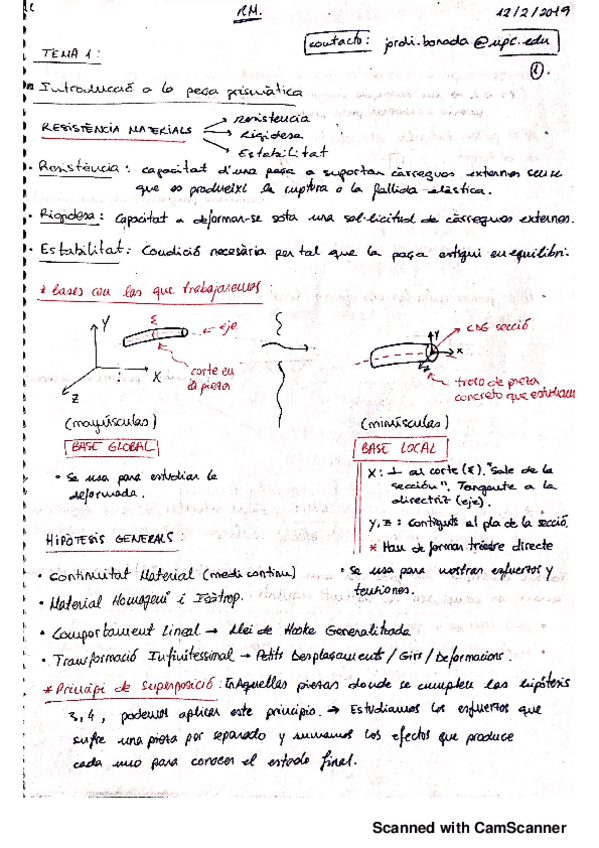 RM.
12/2/2019
TEMA 1:
contacto: jordi.bonada@upc.edu
1.
Introducció a la peça prismàtica
RESISTÈNCIA MATERIALS
Resistencia
Rigidesa
Estabilitat
· Resistència: capacitat d'una peça a suportar càrregues externes sense
que es produeixi la ruptura o la fallida elàstica.
· Rigidesa: Capacitat a deformar-se sota una sol·licitud de càrregues externes.
· Estabilitat: Condició necesària per tal que la peça estigui en equilibri.
* bases con las que trabajaremos:
Y
X
Z
Σ
eje
corte en
la pieza
(mayúsculas)
BASE GLOBAL
· Se usa para estudiar la
deformada.
y
x
z
CDG secció
trozo de pieza
concreto que estudiam
(minúsculas)
BASE LOCAL
X: ⊥ al corte (Σ). "Sale de la
sección". Tangente a la
directriz (eje).
Y, z: contiguts al pla de la secció.
* Han de formar triedre directe
· Se usa para mostrar esfuerzos y
tensiones.
HIPÒTESIS GENERALS:
· Continuitat Material (medi continu)
· Material Homogeni i Isòtrop.
· Comportament Lineal → Llei de Hooke Generalitzada
· Transformació Infinitessinal → Petits Desplaçaments / Girs / Deformacions.
* Principi de Superposició: En aquellas piezas donde se cumplen las hipótesis
3, 4, podemos aplicar este principio. → Estudiamos los esfuerzos que
sufre una pieza por separado y sumamos los efectos que produce
cada uno para conocer el estado final.
Scanned with CamScanner